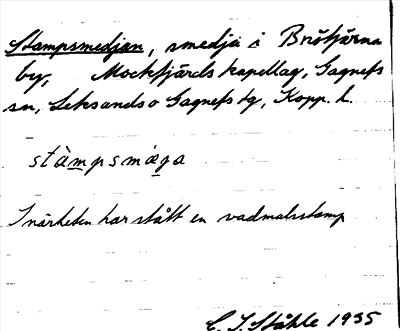 Stampsmedjan, smedja i Brötjärna
by, Mockfjärds kapellag, Gagnefs
sn, Leksands o Gagnefs tg, Kopp. l.
stàmpsmæga
I närheten har stått en vadmalsstamp
C. I. Ståhle 1935